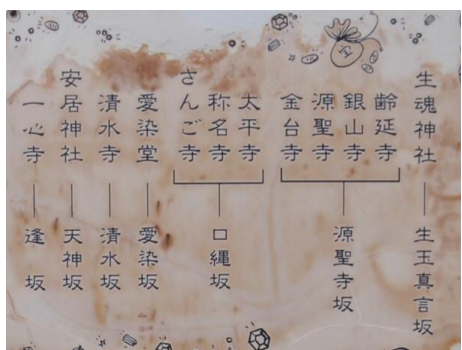 生魂神社
生玉真言坂
齢延寺
銀山寺
源聖寺
金台寺
源聖寺坂
太平寺
称名寺
さんご寺
口縄坂
愛染堂
愛染坂
清水寺
清水坂
安居神社
天神坂
一心寺
逢坂